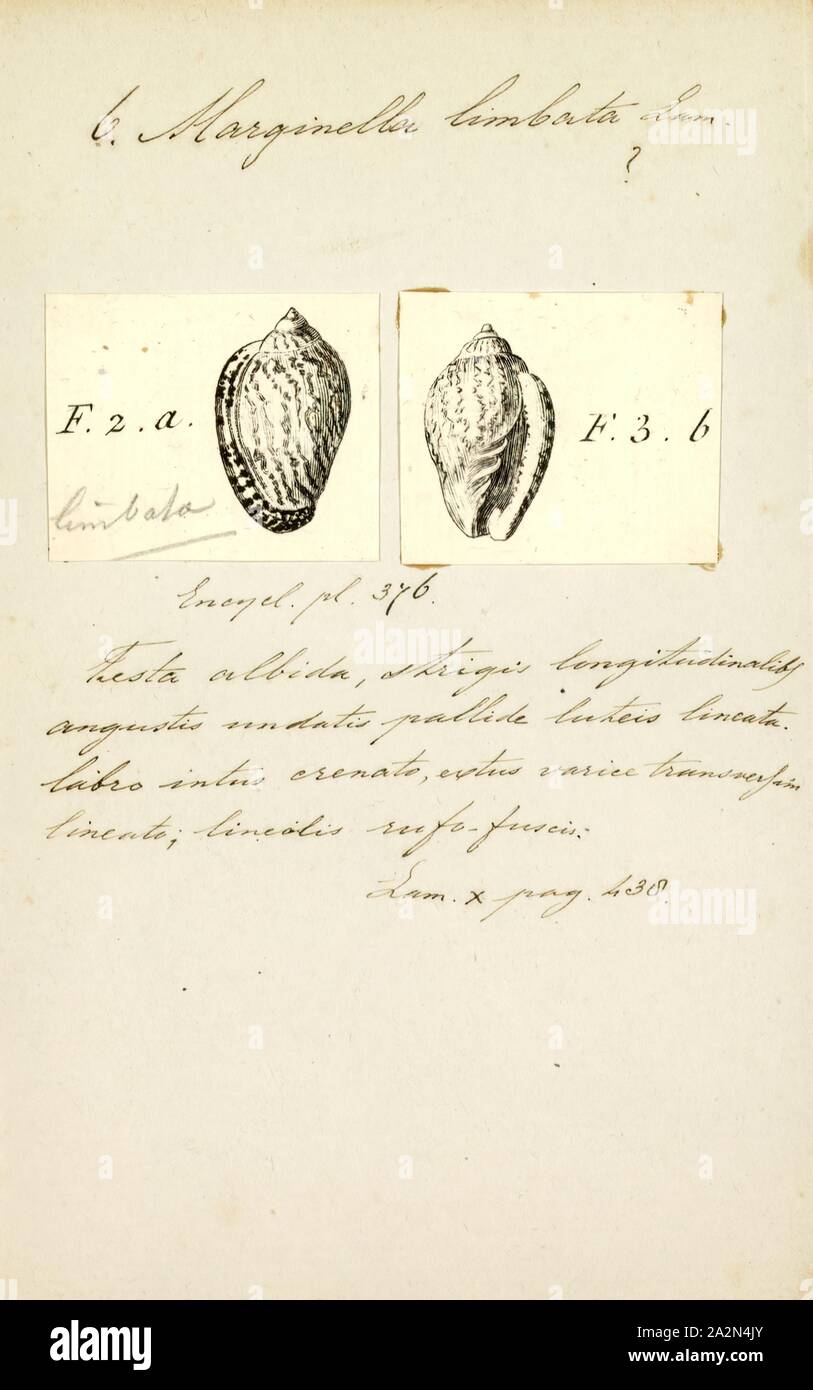 6. Marginella limbata Lam.
?
F. 2. a.
F. 3. b
limbata
Encycl. pl. 376.
Testa albida, strigis longitudinalib9
angustis undatis pallide luteis lineata.
labro intus crenato, extus varice transversim
lineato; lineolis rufo-fuscis:
Lam. x pag. 438.
alamy
Image ID: 2A2N4JY
www.alamy.com